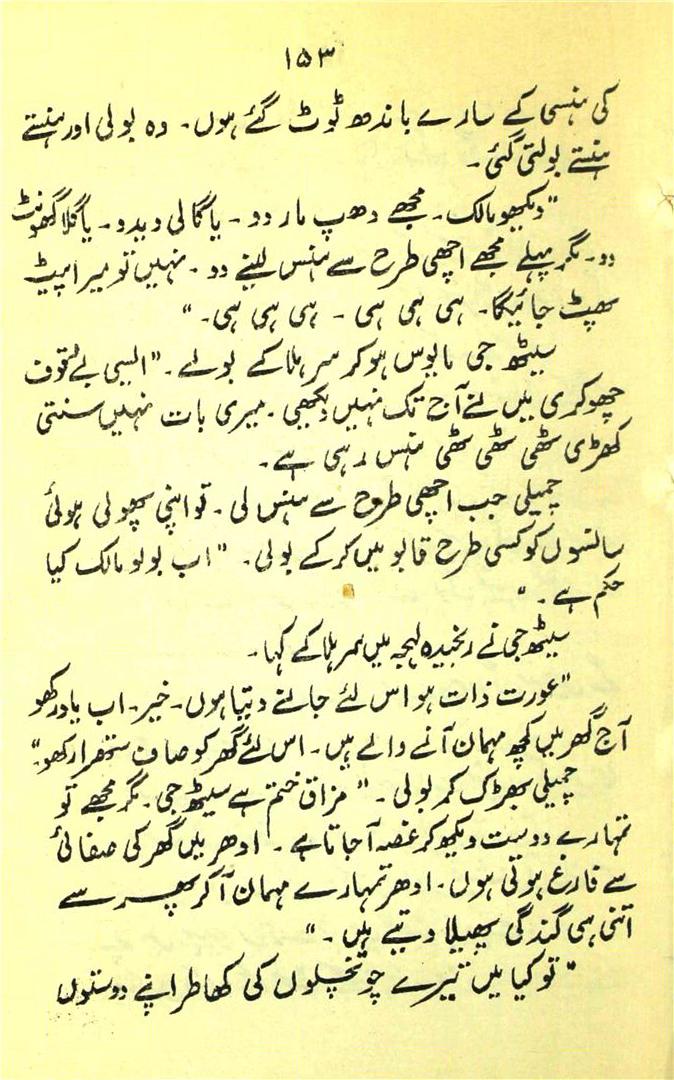 ۱۵۳
کی ہنسی کے سارے باندھ ٹوٹ گئے ہوں۔ وہ بولی اور ہنستے
ہنستے بولتی گئی۔
"دیکھو مالک۔ مجھے دھپ مار دو۔ یا گالی دیدو۔ یا گلا گھونٹ
دو۔ مگر پہلے مجھے اچھی طرح سے ہنس لینے دو۔ نہیں تو میرا پیٹ
پھٹ جائیگا۔ ہی ہی ہی ۔ ہی ہی ہی۔"
سیٹھ جی مایوس ہوکر سر ہلا کے بولے۔ "ایسی بےقوف
چھوکری میں نے آج تک نہیں دیکھی۔ میری بات نہیں سنتی
کھڑی ٹھی ٹھی ٹھی ہنس رہی ہے۔
چمیلی جب اچھی طرح سے ہنس لی۔ تو اپنی پھولی ہوئی
سانسوں کو کسی طرح قابو میں کر کے بولی۔ "اب بولو مالک کیا
حکم ہے۔"
سیٹھ جی نے رنجیدہ لہجہ میں سر ہلا کے کہا۔
"عورت ذات ہو اس لئے جانے دیتا ہوں۔ خیر۔ اب یاد رکھو
آج گھر میں کچھ مہمان آنے والے ہیں۔ اس لئے گھر کو صاف ستھرا رکھو۔"
چمیلی بھڑک کر بولی۔ "مزاق ختم ہے سیٹھ جی۔ مگر مجھے تو
تمہارے دوست دیکھ کر غصہ آ جاتا ہے۔ ادھر میں گھر کی صفائی
سے فارغ ہوتی ہوں۔ ادھر تمہارے مہمان آ کر پھر سے
اتنی ہی گندگی پھیلا دیتے ہیں۔"
"تو کیا میں تیرے چونچلوں کی کھاطر اپنے دوستوں